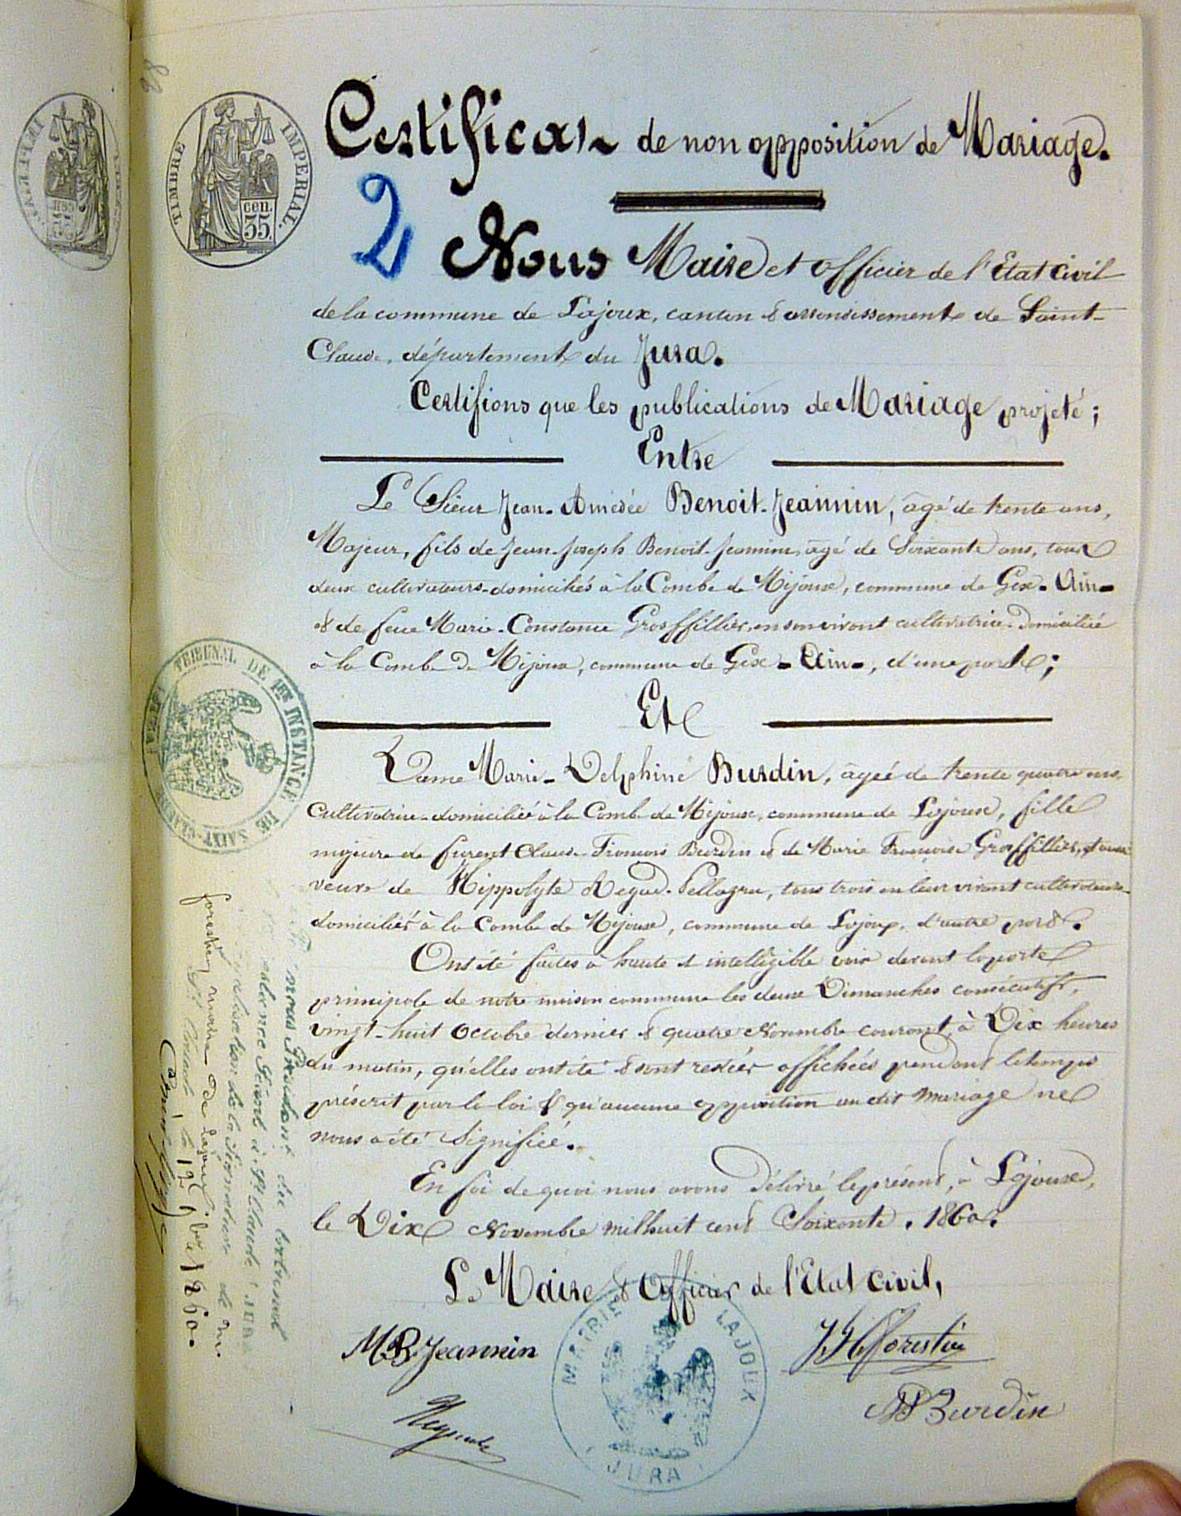 TIMBRE IMPERIAL.
cen. 35
Certificat de non opposition de Mariage.
2
Nous Maire et officier de l'Etat Civil
de la commune de Lajoux, canton & arrondissement de Saint-
Claude, département du Jura.
Certifions que les publications de Mariage projeté;
Entre
Le Sieur Jean-Amédée Benoit-Jeannin, âgé de trente ans,
Majeur, fils de Jean-Joseph Benoit-Jeannin, âgé de Soixante ans, tous
deux cultivateurs-domiciliés à la Combe de Mijoux, commune de Gex-Ain-
& de feue Marie-Constance Grosffillier, en son vivant cultivatrice-domiciliée
à la Combe de Mijoux, commune de Gex-Ain-, d'une part;
Et
Dame Marie-Delphine Burdin, âgée de trente quatre ans,
cultivatrice-domiciliée à la Combe de Mijoux, commune de Lajoux, fille
majeure de furent Claude-François Burdin & de Marie Françoise Grosffillier,
veuve de Hippolyte Regad-Pellagru, tous trois en leur vivant cultivateurs-
domiciliés à la Combe de Mijoux, commune de Lajoux, d'autre part.
Ont été faites à haute & intelligible voix devant la porte
principale de notre maison commune les deux Dimanches consécutifs,
vingt-huit Octobre dernier & quatre Novembre courant, à Dix heures
du matin, qu'elles ont été & sont restées affichées pendant le temps
préscrit par la loi & qu'aucune opposition au dit mariage ne
nous a été Signifiée.
En foi de quoi nous avons Délivré le présent, à Lajoux,
le Dix Novembre mil huit cent Soixante. 1860.
Le Maire & Officier de l'Etat Civil,
MB Jeannin
Burdin
MAIRIE LAJOUX
JURA
TRIBUNAL DE 1RE INSTANCE DE SAINT-CLAUDE
nous Président du tribunal
de la Signature de m.
maire de Lajoux
St Claude, le 12 9bre 1860.